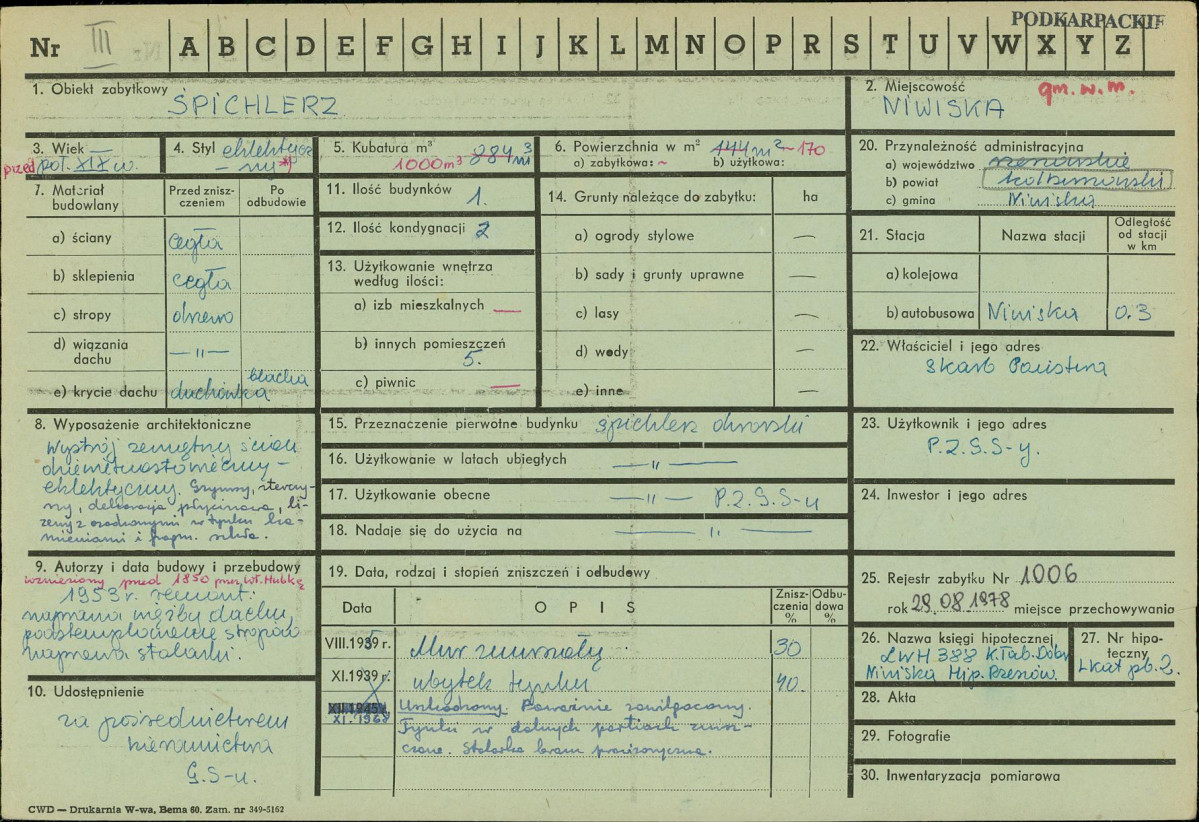 PODKARPACKIE
Nr III A B C D E F G H I J K L M N O P R S T U V W X Y Z
1. Obiekt zabytkowy
SPICHLERZ
2. Miejscowość gm. w.m.
NIWISKA
3. Wiek
przed poł. XIX w.
4. Styl eklektycz-
ny *)
5. Kubatura m³ 884 m³
1000 m³
6. Powierzchnia w m² 444 m² ~170
a) zabytkowa: ~ b) użytkowa:
20. Przynależność administracyjna
a) województwo rzeszowskie
b) powiat kolbuszowski
c) gmina Niwiska
7. Materiał budowlany
Przed znisz-czeniem
Po odbudowie
a) ściany cegła
b) sklepienia cegła
c) stropy drewno
d) wiązania dachu — " —
e) krycie dachu dachówka blacha
11. Ilość budynków 1.
12. Ilość kondygnacji 2
13. Użytkowanie wnętrza
według ilości:
a) izb mieszkalnych —
b) innych pomieszczeń
5.
c) piwnic —
14. Grunty należące do zabytku: ha
a) ogrody stylowe —
b) sady i grunty uprawne —
c) lasy —
d) wody —
e) inne —
21. Stacja Nazwa stacji Odległość od stacji w km
a) kolejowa
b) autobusowa Niwiska 0.3
22. Właściciel i jego adres
Skarb Państwa
8. Wyposażenie architektoniczne
Wystrój zewnętrzny ścian
dziewiętnastowieczny -
eklektyczny. Gzymsy, stercz-
ny, dekoracja płycinowa, li-
zeny z osadzonymi w tynku ka-
mieniami i fragm. szkła.
15. Przeznaczenie pierwotne budynku spichlerz dworski
16. Użytkowanie w latach ubiegłych — " —
17. Użytkowanie obecne — " — P.Z.G.S-u
18. Nadaje się do użycia na — " —
23. Użytkownik i jego adres
P.Z.G.S-y.
24. Inwestor i jego adres
9. Autorzy i data budowy i przebudowy
wzniesiony przed 1850 przez Wł. Hubkę
1953 r. remont:
naprawa więźby dachu,
podstemplowanie stropów
naprawa stolarki.
19. Data, rodzaj i stopień zniszczeń i odbudowy
Data OPIS Znisz-czenia % Odbu-dowa %
VIII.1939 r. Mur zmurszały 30
XI.1939 r. ubytek tynku 40.
XII.1945 r.
XI. 1968
Uszkodzony. Poważnie zawilgocony.
Tynki w dolnych partiach znisz-
czone. Stolarka bram prowizoryczna.
25. Rejestr zabytku Nr 1006
rok 28.08.1978 miejsce przechowywania
26. Nazwa księgi hipotecznej
LWH 388 K. Tab. Dóbr
Niwiska Hip. Rzeszów.
27. Nr hipo-teczny
Lkat pb. 2.
10. Udostępnienie
za pośrednictwem
kierownictwa
G.S-u.
28. Akta
29. Fotografie
30. Inwentaryzacja pomiarowa
CWD — Drukarnia W-wa, Bema 60. Zam. nr 349-5162